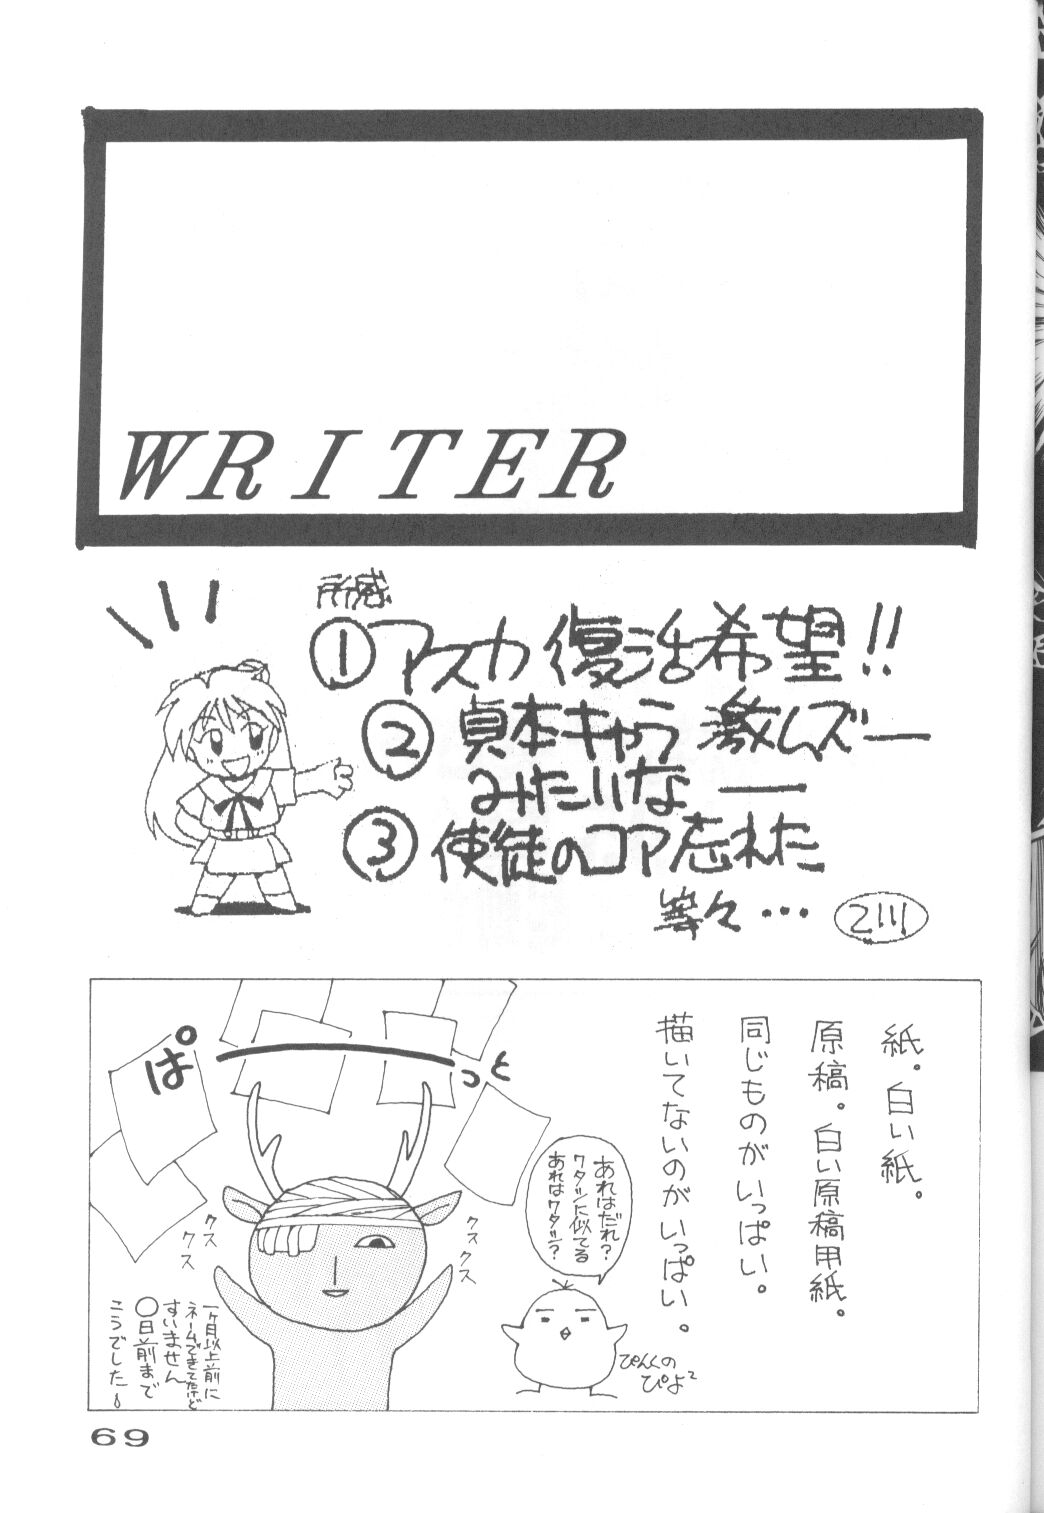 WRITER
所感
①アスカ復活希望!!
②貞本キャラ激ムズー
みたいなー
③使徒のコア忘れた
等々…
紙。白い紙。
原稿。白い原稿用紙。
同じものがいっぱい。
描いてないのがいっぱい。
ぱ
っと
あれはだれ?
ワタシに似てる
あれはワタシ?
クスクス
クスクス
ぴんくの
ぴよ²
一ヶ月以上前に
ネームできてたけど
すいません
〇日前まで
こうでした
69